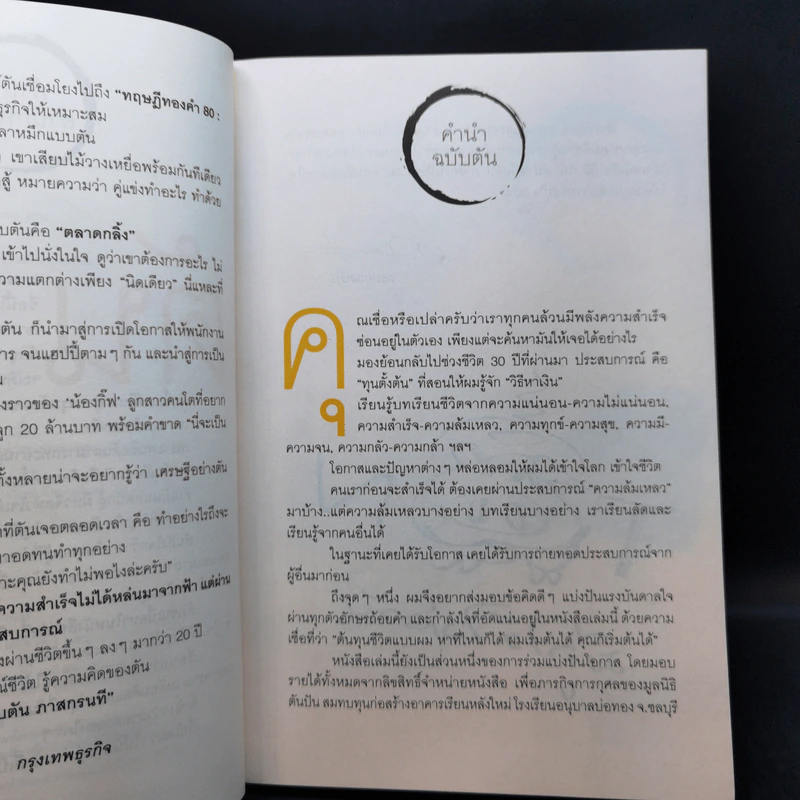 ตันเชื่อมโยงไปถึง “ทฤษฎีทองคำ 80 :
ธุรกิจให้เหมาะสม
ปลาหมึกแบบตัน
เขาเสียบไม้วางเหยื่อพร้อมกันทีเดียว
สู้ หมายความว่า คู่แข่งทำอะไร ทำด้วย
บตันคือ “ตลาดกลิ้ง”
เข้าไปนั่งในใจ ดูว่าเขาต้องการอะไร ไม่
ความแตกต่างเพียง “นิดเดียว” นี่แหละที่
ตัน ก็นำมาสู่การเปิดโอกาสให้พนักงาน
การ จนแฮปปี้ตามๆ กัน และนำสู่การเป็น
น
องราวของ ‘น้องกิ๊ฟ’ ลูกสาวคนโตที่อยาก
ลูก 20 ล้านบาท พร้อมคำขาด “นี่จะเป็น
ทั้งหลายน่าจะอยากรู้ว่า เศรษฐีอย่างตัน
าที่ตันเจอตลอดเวลา คือ ทำอย่างไรถึงจะ
อดทนทำทุกอย่าง
าะคุณยังทำไม่พอไงล่ะครับ”
ความสำเร็จไม่ได้หล่นมาจากฟ้า แต่ผ่าน
สบการณ์
ผ่านชีวิตขึ้นๆ ลงๆ มากว่า 20 ปี
ณ์ชีวิต รู้ความคิดของตัน
บตัน ภาสกรนที”
กรุงเทพธุรกิจ
คำนำ
ฉบับตัน
คุณเชื่อหรือเปล่าครับว่าเราทุกคนล้วนมีพลังความสำเร็จ
ซ่อนอยู่ในตัวเอง เพียงแต่จะค้นหามันให้เจอได้อย่างไร
มองย้อนกลับไปช่วงชีวิต 30 ปีที่ผ่านมา ประสบการณ์ คือ
“ทุนตั้งต้น” ที่สอนให้ผมรู้จัก “วิธีหาเงิน”
เรียนรู้บทเรียนชีวิตจากความแน่นอน-ความไม่แน่นอน,
ความสำเร็จ-ความล้มเหลว, ความทุกข์-ความสุข, ความมี-
ความจน, ความกลัว-ความกล้า ฯลฯ
โอกาสและปัญหาต่างๆ หล่อหลอมให้ผมได้เข้าใจโลก เข้าใจชีวิต
คนเราก่อนจะสำเร็จได้ ต้องเคยผ่านประสบการณ์ “ความล้มเหลว”
มาบ้าง..แต่ความล้มเหลวบางอย่าง บทเรียนบางอย่าง เราเรียนลัดและ
เรียนรู้จากคนอื่นได้
ในฐานะที่เคยได้รับโอกาส เคยได้รับการถ่ายทอดประสบการณ์จาก
ผู้อื่นมาก่อน
ถึงจุดๆ หนึ่ง ผมจึงอยากส่งมอบข้อคิดดีๆ แบ่งปันแรงบันดาลใจ
ผ่านทุกตัวอักษรถ้อยคำ และกำลังใจที่อัดแน่นอยู่ในหนังสือเล่มนี้ ด้วยความ
เชื่อที่ว่า “ต้นทุนชีวิตแบบผม หาที่ไหนก็ได้ ผมเริ่มต้นได้ คุณก็เริ่มต้นได้”
หนังสือเล่มนี้ยังเป็นส่วนหนึ่งของการร่วมแบ่งปันโอกาส โดยมอบ
รายได้ทั้งหมดจากลิขสิทธิ์จำหน่ายหนังสือ เพื่อภารกิจการกุศลของมูลนิธิ
ตันปัน สมทบทุนก่อสร้างอาคารเรียนหลังใหม่ โรงเรียนอนุบาลบ่อทอง จ.ชลบุรี